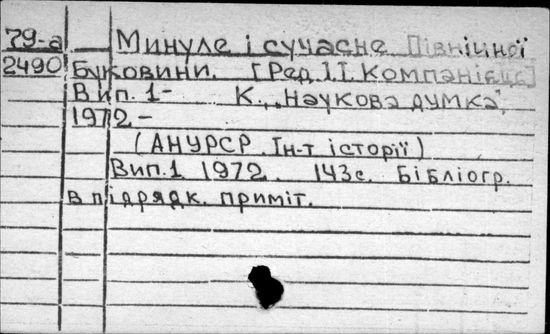 79-а Минуле і сучасне Північної
2490 Буковини. [Ред. І.І. Компанієць]
Вип. 1- К., "Наукова думка",
1972.-
(АН УРСР Ін-т історії)
Вип. 1 1972. 143с. Бібліогр.
в підрядк. приміт.